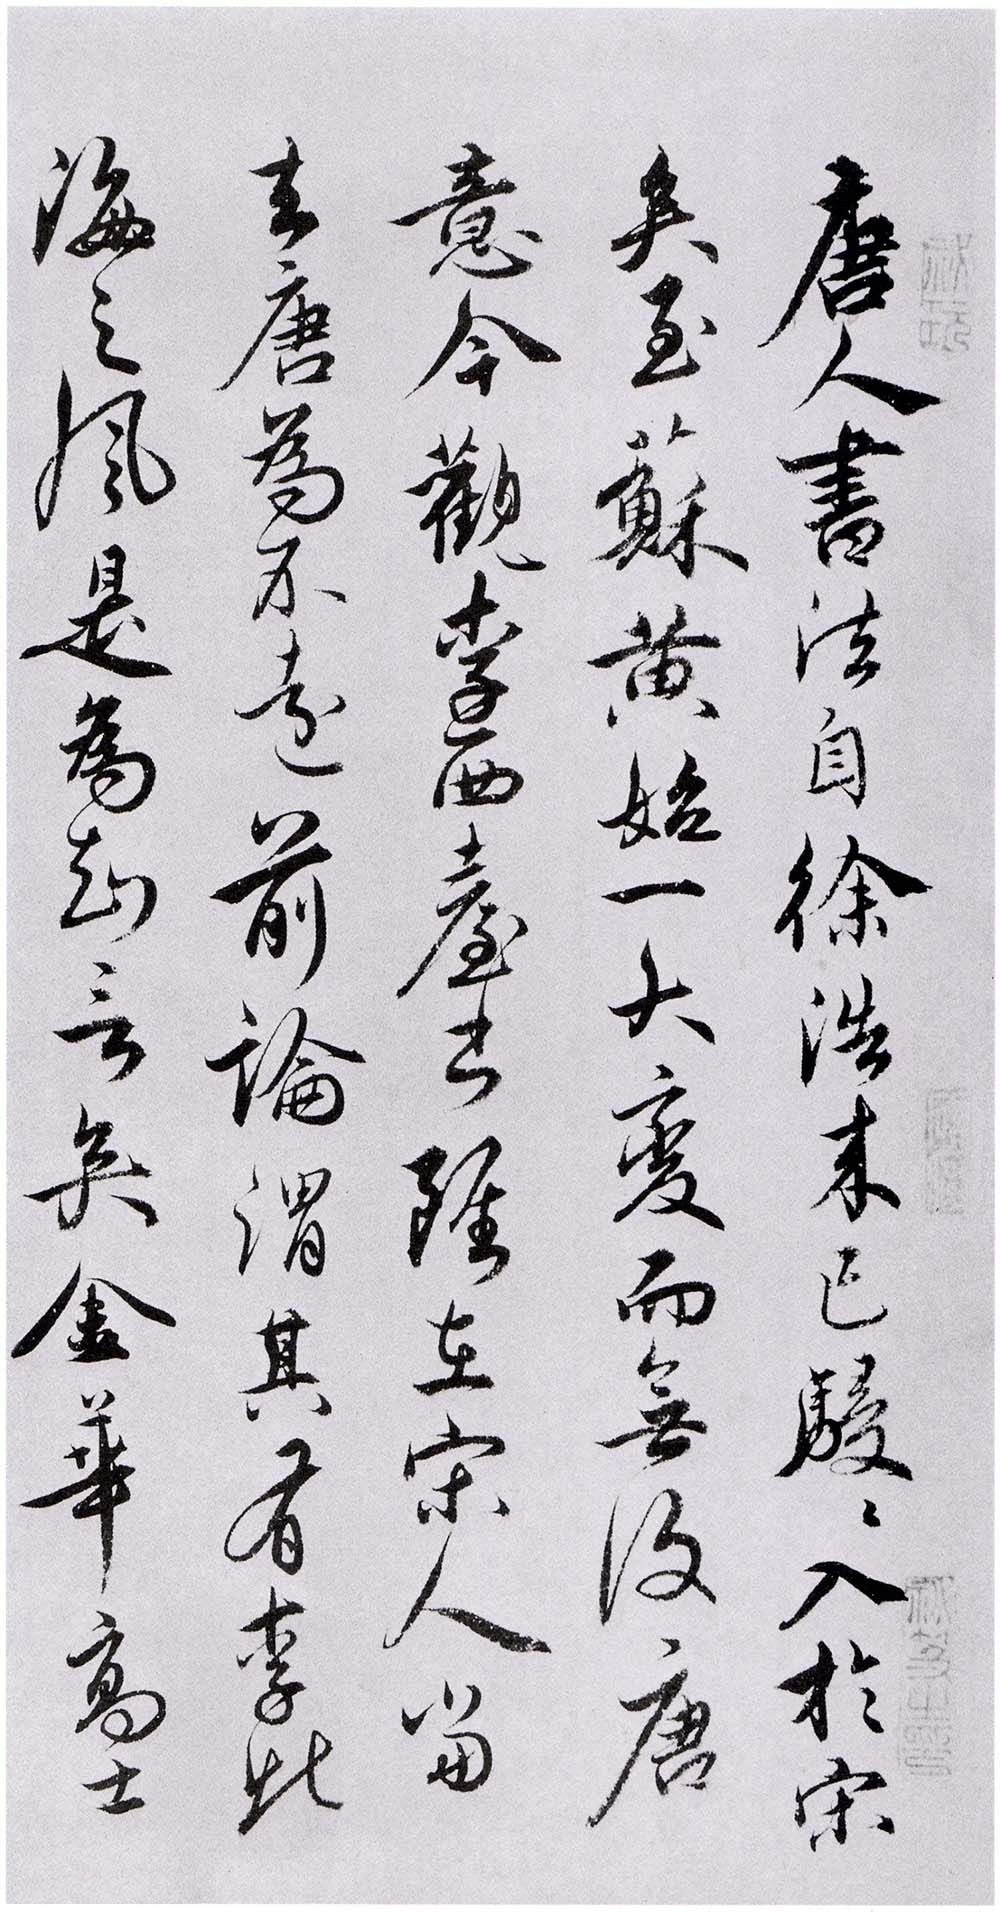 唐人書法自徐浩來已駸〻入於宋
矣至蘇黃始一大變而無復唐
意今觀李西臺書雖在宋人當
去唐為不遠前論謂其有李北
海之風是為知言矣金華高士